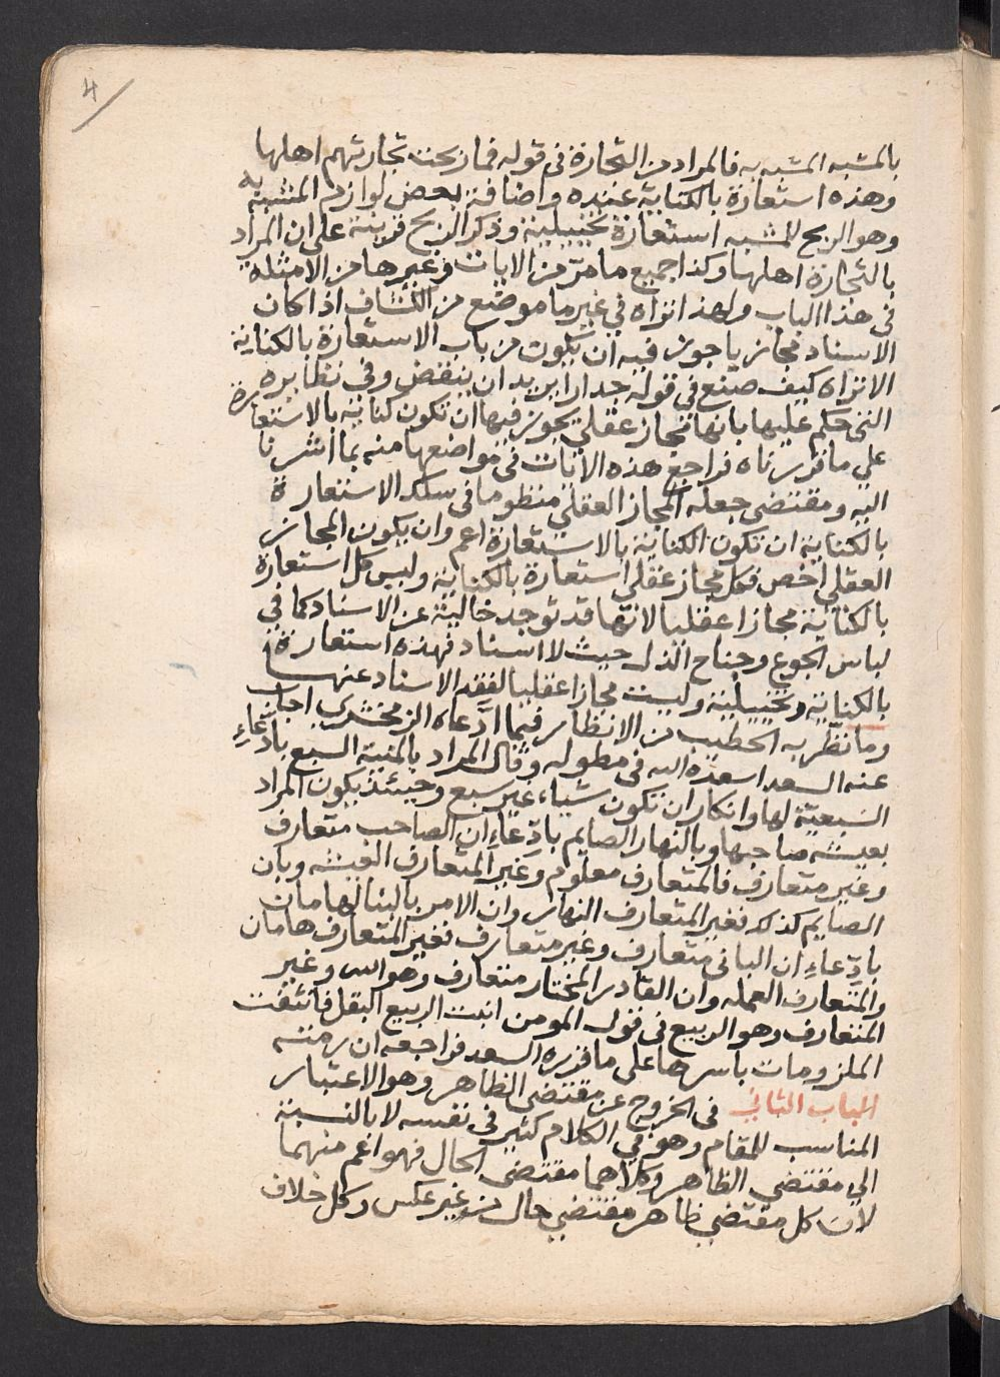 4
بالمشبه المشبه به فالمراد من التجارة في قوله فما ربحت تجارتهم اهلها
وهذه استعارة بالكناية عنده واضافة بعض لوازم المشبه به
وهو الربح للمشبه استعارة تخييلية وذكر الربح قرينة على ان المراد
بالتجارة اهلها وكذا جميع ما مرّ من الايات وغيرها من الامثلة
في هذا الباب ولهذا نراه في غير ما موضع من الكشاف اذا كان
الاسناد مجازيا جوز فيه ان يكون من باب الاستعارة بالكناية
الا تراه كيف صنع في قوله جدارا يريد ان ينقض وفي نظايره
التي حكم عليها بانها مجاز عقلي يجوز فيها ان تكون كناية بالاستعارة
على ما قررناه فراجع هذه الايات في مواضعها منه بما اشرنا
اليه ومقتضى جعله المجاز العقلي منظوما في سلك الاستعارة
بالكناية ان تكون الكناية بالاستعارة اعم وان يكون المجاز
العقلي اخص فكل مجاز عقلي استعارة بالكناية وليس كل استعارة
بالكناية مجازا عقليا لانها قد توجد خالية عن الاسناد كما في
لباس الجوع وجناح الذل حيث لا اسناد فهذه استعارة
بالكناية وتخييلية وليست مجازا عقليا لفقد الاسناد عنها
وما نظّر به الخطيب من الانظار فيما ادّعاه الزمخشري اجاب
عنه السعد اسعده الله في مطوله وقال المراد بالمنية السبع بادّعاءِ
السَبعيّة لها وانكار ان تكون شياء غير سبع وحينئذ يكون المراد
بعيشه صاحبها وبالنهار الصايم بادّعاءِ ان الصاحب متعارف
وغير متعارف فالمتعارف معلوم وغير المتعارف العيشه وبان
الصايم كذلك فغير المتعارف النهار وان الامر بالبنا لهامان
بادّعاءِ ان الباني متعارف وغير متعارف فغير المتعارف هامان
والمتعارف العمله وان القادر المختار متعارف وهو الله وغير
المتعارف وهو الربيع في قول المومن انبت الربيع البقل فانتفت
الملزومات باسرها على ما قرره السعد فراجعه ان رمته
الباب الثاني في الخروج عن مقتضى الظاهر وهو الاعتبار
المناسب للمقام وهو في الكلام كثير في نفسه لا بالنسبة
الى مقتضى الظاهر وكلاهما مقتضى الحال فهو اعم منهما
لانّ كل مقتضى ظاهر مقتضى حال من غير عكس وكل خلاف